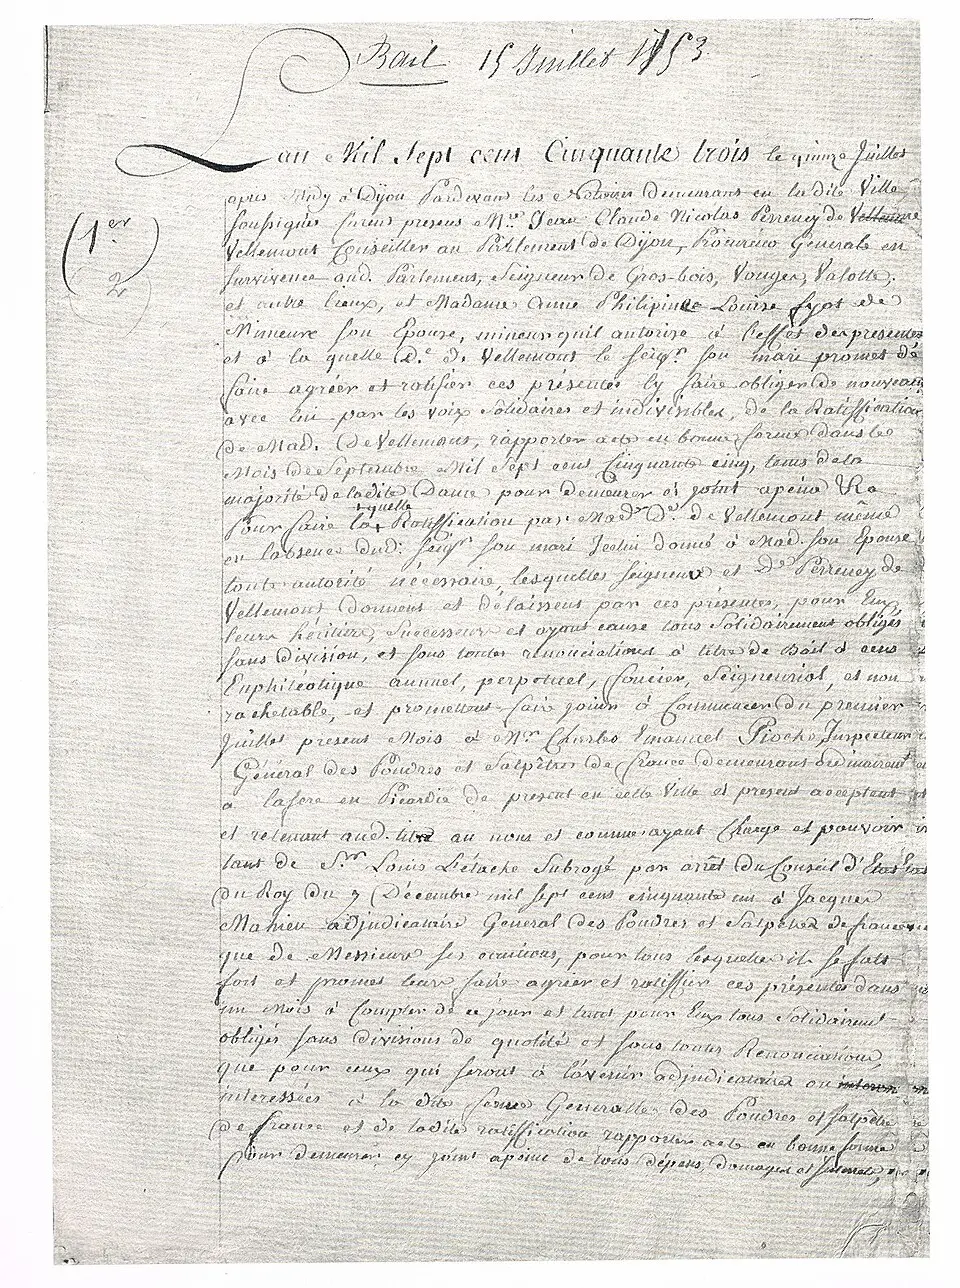 Bail 15 Juillet 1753
Lan Mil Sept cent Cinquante trois le quinze Juillet
apres Midy à Dijon Pardevant les Notaires demeurans en la dite Ville
soussignés furent presens Mre Jean Claude Nicolas Perreney de Vellemont
Vellemont Conseiller au Parlement de Dijon, Procureur Général en
survivence aud. Parlement, Seigneur de Gros-bois, Vouges, Valotte,
et autre lieux, et Madame Anne Philipine Louise fyot de
Mimeure son Epouse, mineur quil autorise à l'effet des presentes
et à la quelle De de Vellemont le seigr son mari promet de
faire agréer et ratifier ces présentes ly faire obliger de nouveau
avec lui par les voix Solidaires et indivisibles, de la Ratiffication
de Mad. De Vellemont, rapporter acte en bonne forme dans le
Mois de Septembre Mil Sept cent Cinquante cinq, tems de la
majorité de ladite Dame pour demeurer cy joint apeine
Pour faire laquelle Ratiffication par Made De de Vellemont même
en labsence dud: seigr son mari donné à Mad. son Epouse
toute autorité nécessaire lesquelles seigneur et De Perreney de
Vellemont donnent et délaissent par ces présentes, pour Eux,
leurs héritiers, Successeurs et ayant cause tous Solidairement obligés
sans division, et sous toutes renonciations à titre de Bail à cens
Enphitéotique annuel, perpetuel, foncier, Seigneurial, et non
rachetable, et promettent faire jouir à Commencer du premier
Juillet present Mois à Mr Charles Emanuel Pioche, Inspecteur
Général des Poudres et Salpêtres de france demeurant ordinairemt
a lafere en Picardie de present en cette Ville et present acceptant
et retenant aud. titre au nom et comme ayant Charge et pouvoir
tant de Sr Louis Létache Subrogé par arrêt du Conseil d'Etat
du Roy du 7 Décembre mil sept cent cinquante un à Jacques
Mahieu adjudicataire Général des Poudres et Salpêtres de france
que de Messieurs ses cautions, pour tous lesquelles il se fait
fort et promet leur faire agréer et ratiffier ces présentes dans
un Mois à Compter de ce jour et tant pour Eux tous Solidairemt
obligés sans divisions de quotité et sous toutes Renonciations,
que pour ceux qui seront à lavenir adjudicataires ou
interessées à la dite ferme Generalle des Poudres et salpêtre
de france et de ladite ratiffication rapporter acte en bonne forme
pour demeurer cy joint apeine de tous dépens, domages et Interets,
(1er
2)